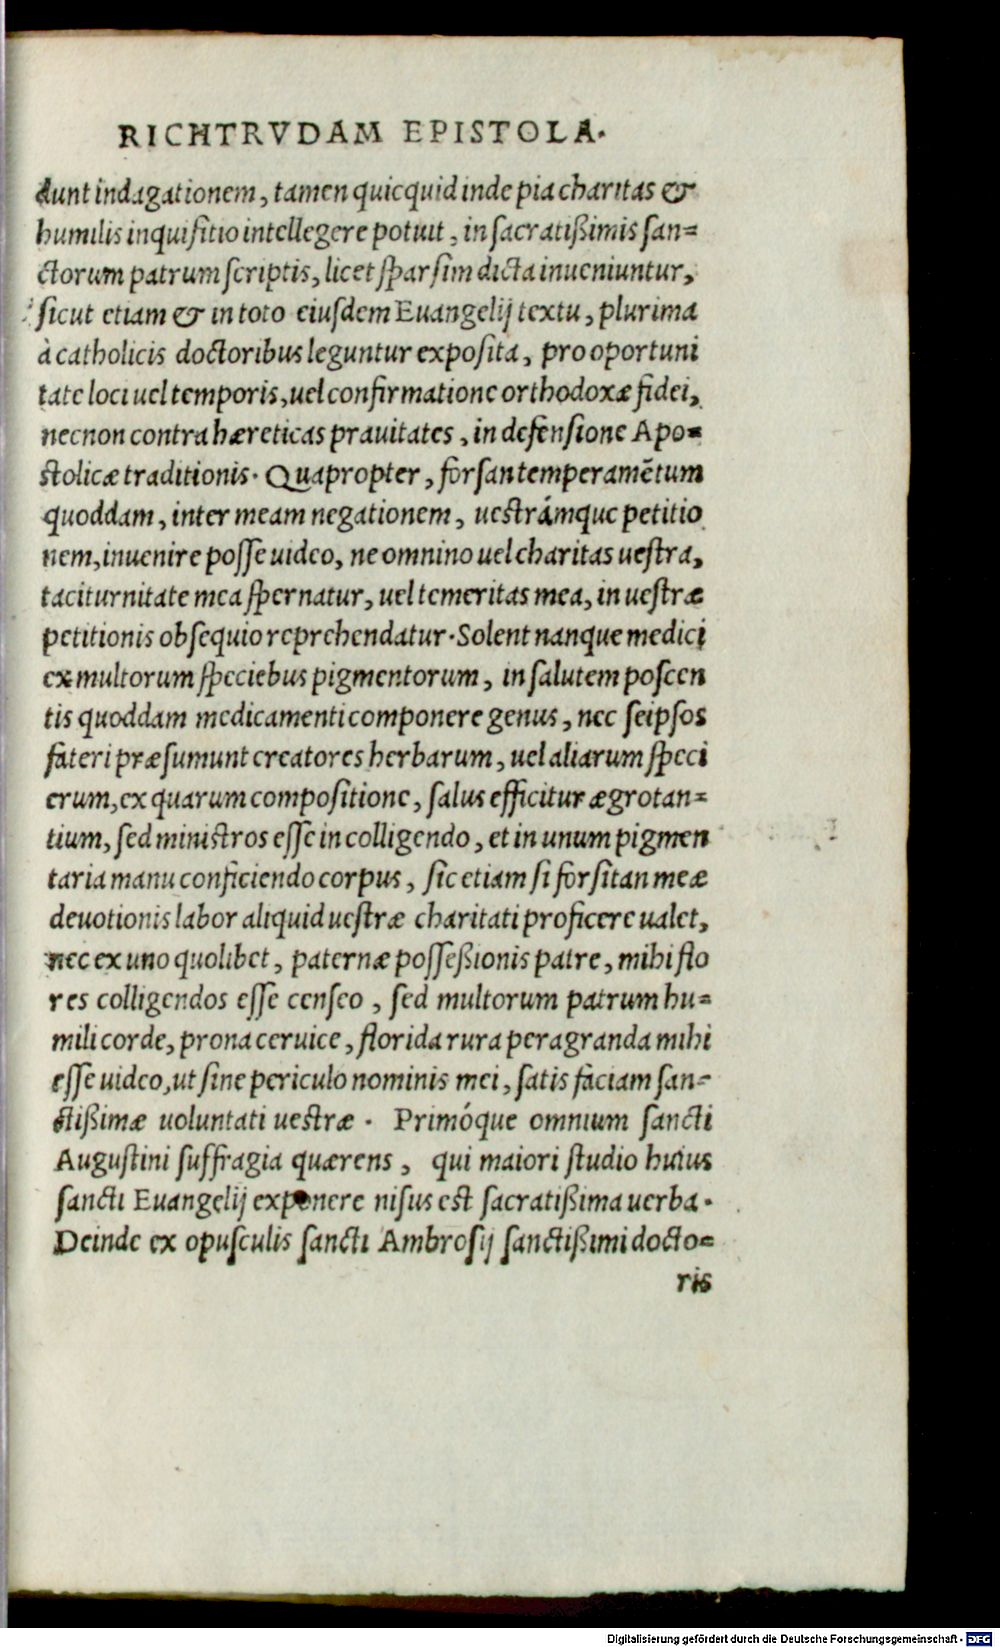 RICHTRVDAM EPISTOLA.
dunt indagationem, tamen quicquid inde pia charitas &
humilis inquisitio intellegere potuit, in sacratißimis san-
ctorum patrum scriptis, licet sparsim dicta inueniuntur,
sicut etiam & in toto eiusdem Euangelij textu, plurima
à catholicis doctoribus leguntur exposita, pro oportuni
tate loci uel temporis, uel confirmatione orthodoxæ fidei,
necnon contra hæreticas prauitates, in defensione Apo-
stolicæ traditionis. Quapropter, forsan temperamẽtum
quoddam, inter meam negationem, uestrámque petitio
nem, inuenire posse uideo, ne omnino uel charitas uestra,
taciturnitate mea spernatur, uel temeritas mea, in uestræ
petitionis obsequio reprehendatur. Solent nanque medici
ex multorum speciebus pigmentorum, in salutem poscen
tis quoddam medicamenti componere genus, nec seipsos
fateri præsumunt creatores herbarum, uel aliarum speci
erum, ex quarum compositione, salus efficitur ægrotan-
tium, sed ministros esse in colligendo, et in unum pigmen
taria manu conficiendo corpus, sic etiam si forsitan meæ
deuotionis labor aliquid uestræ charitati proficere ualet,
nec ex uno quolibet, paternæ posseßionis patre, mihi flo
res colligendos esse censeo, sed multorum patrum hu-
mili corde, prona ceruice, florida rura peragranda mihi
esse uideo, ut sine periculo nominis mei, satis faciam san-
ctißimæ uoluntati uestræ. Primóque omnium sancti
Augustini suffragia quærens, qui maiori studio huius
sancti Euangelij exponere nisus est sacratißima uerba.
Deinde ex opusculis sancti Ambrosij sanctißimi docto-
ris
Digitalisierung gefördert durch die Deutsche Forschungsgemeinschaft - DFG